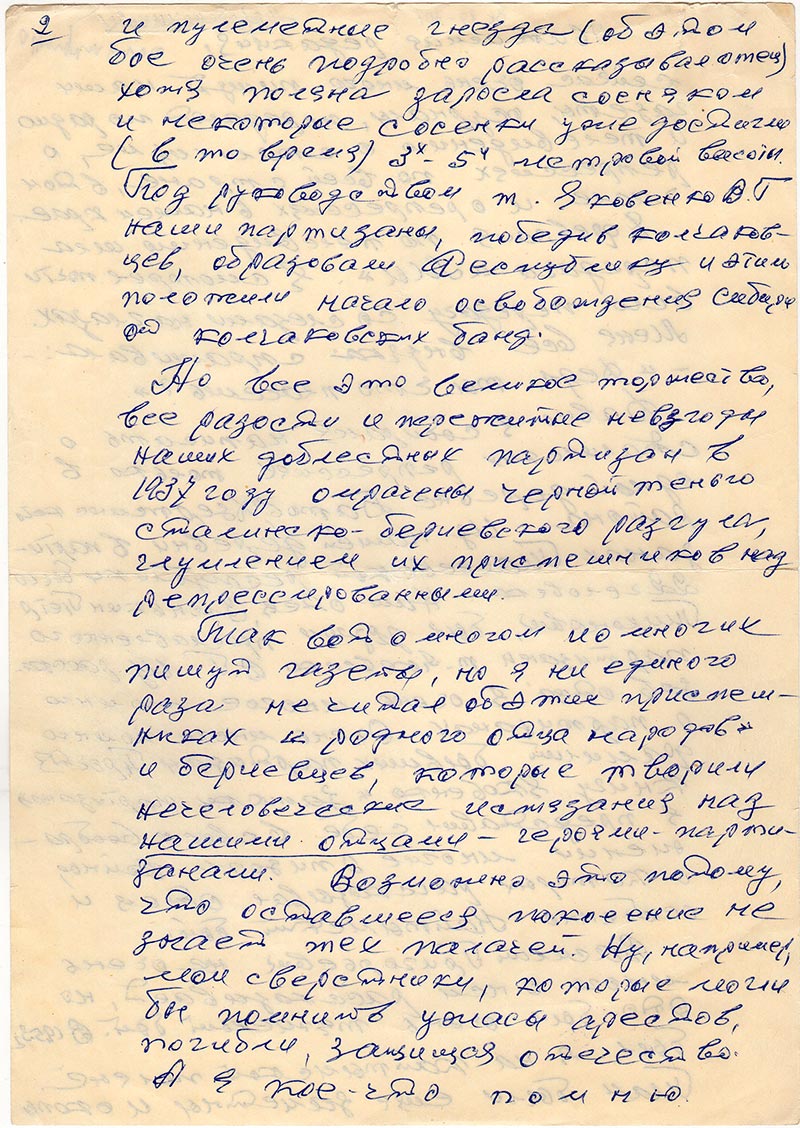 9 и пулеметные гнезда (об этом
бое очень подробно рассказывал отец)
хотя поляна заросла сосняком
и некоторые сосенки уже достигли
(в то время) 3х - 5ти метровой высоты.
Под руководством т. Яковенко В.Г
наши партизаны, победив колчаков-
цев, образовали Республику и этим
положили начало освобождения Сибири
от колчаковских банд.
Но все это великое торжество,
все радости и пережитые невзгоды
наших доблестных партизан в
1937 году омрачены черной тенью
сталинско-бериевского разгула,
глумлением их приспешников над
репрессированными.
Так вот о многом и о многих
пишут газеты, но я ни единого
раза не читал об этих приспеш-
никах "родного отца народов"
и бериевцев, которые творили
нечеловеческие истязания над
нашими отцами - героями-парти-
занами. Возможно это потому,
что оставшееся поколение не
знает тех палачей. Ну, например,
мои сверстники, которые могли
бы помнить ужасы арестов,
погибли, защищая отечество.
А я кое-что помню.